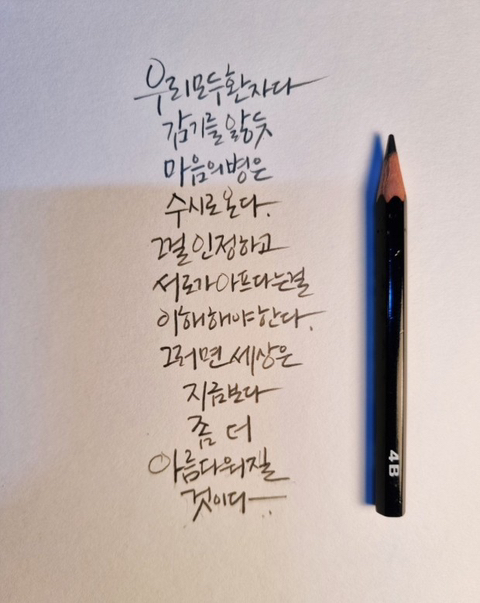 우리모두환자다
감기를 앓듯
마음의병은
수시로온다.
그걸 인정하고
서로가아프다는걸
이해해야한다.
그러면 세상은
지금보다
좀 더
아름다워질
것이다ㅡ..
4B